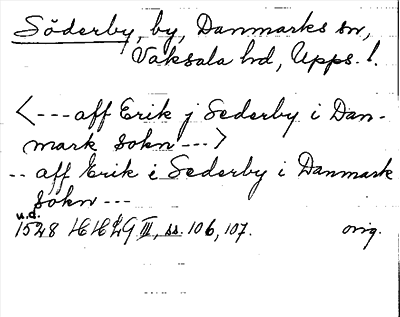 Söderby, by, Danmarks sn,
Vaksala hd, Upps. l.
<--- aff Erik j Sederby i Dan-
mark sokn --->
-- aff Erik i Sederby i Danmark
sokn ---
u.d.
1528 HH 29 III, ss. 106, 107. orig.